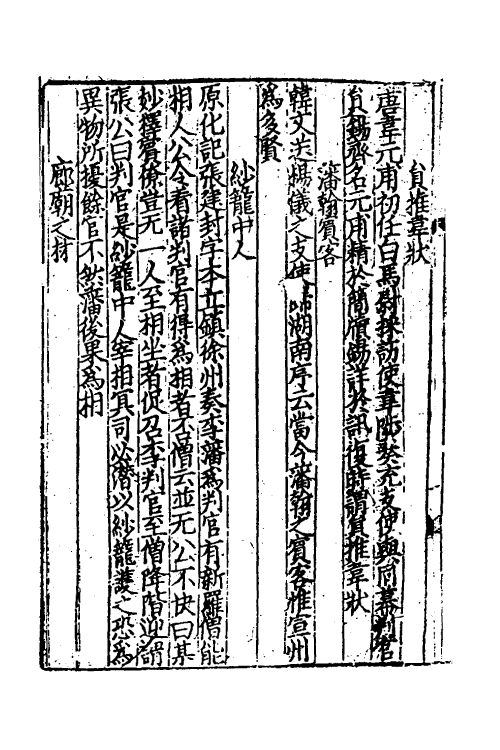 貟推韋狀
唐韋元甫初任白馬尉採訪使韋陟奏充支使與同幕判官
貟錫齊名元甫精於簡牘錫詳於訊復時謂貟推韋狀
藩翰賓客
韓文送楊儀之支使歸湖南序云當今藩翰之賓客惟宣州
為多賢
紗籠中人
原化記張建封字本立鎮徐州奏李藩為判官有新羅僧能
相人公令看諸判官有得為相者否僧云並无公不快曰某
妙擇賓僚豈无一人至相坐者促召李判官至僧降階迎謂
張公曰判官是紗籠中人宰相冥司必潛以紗籠護之恐為
異物所擾餘官不然藩後果為相
廊廟之材